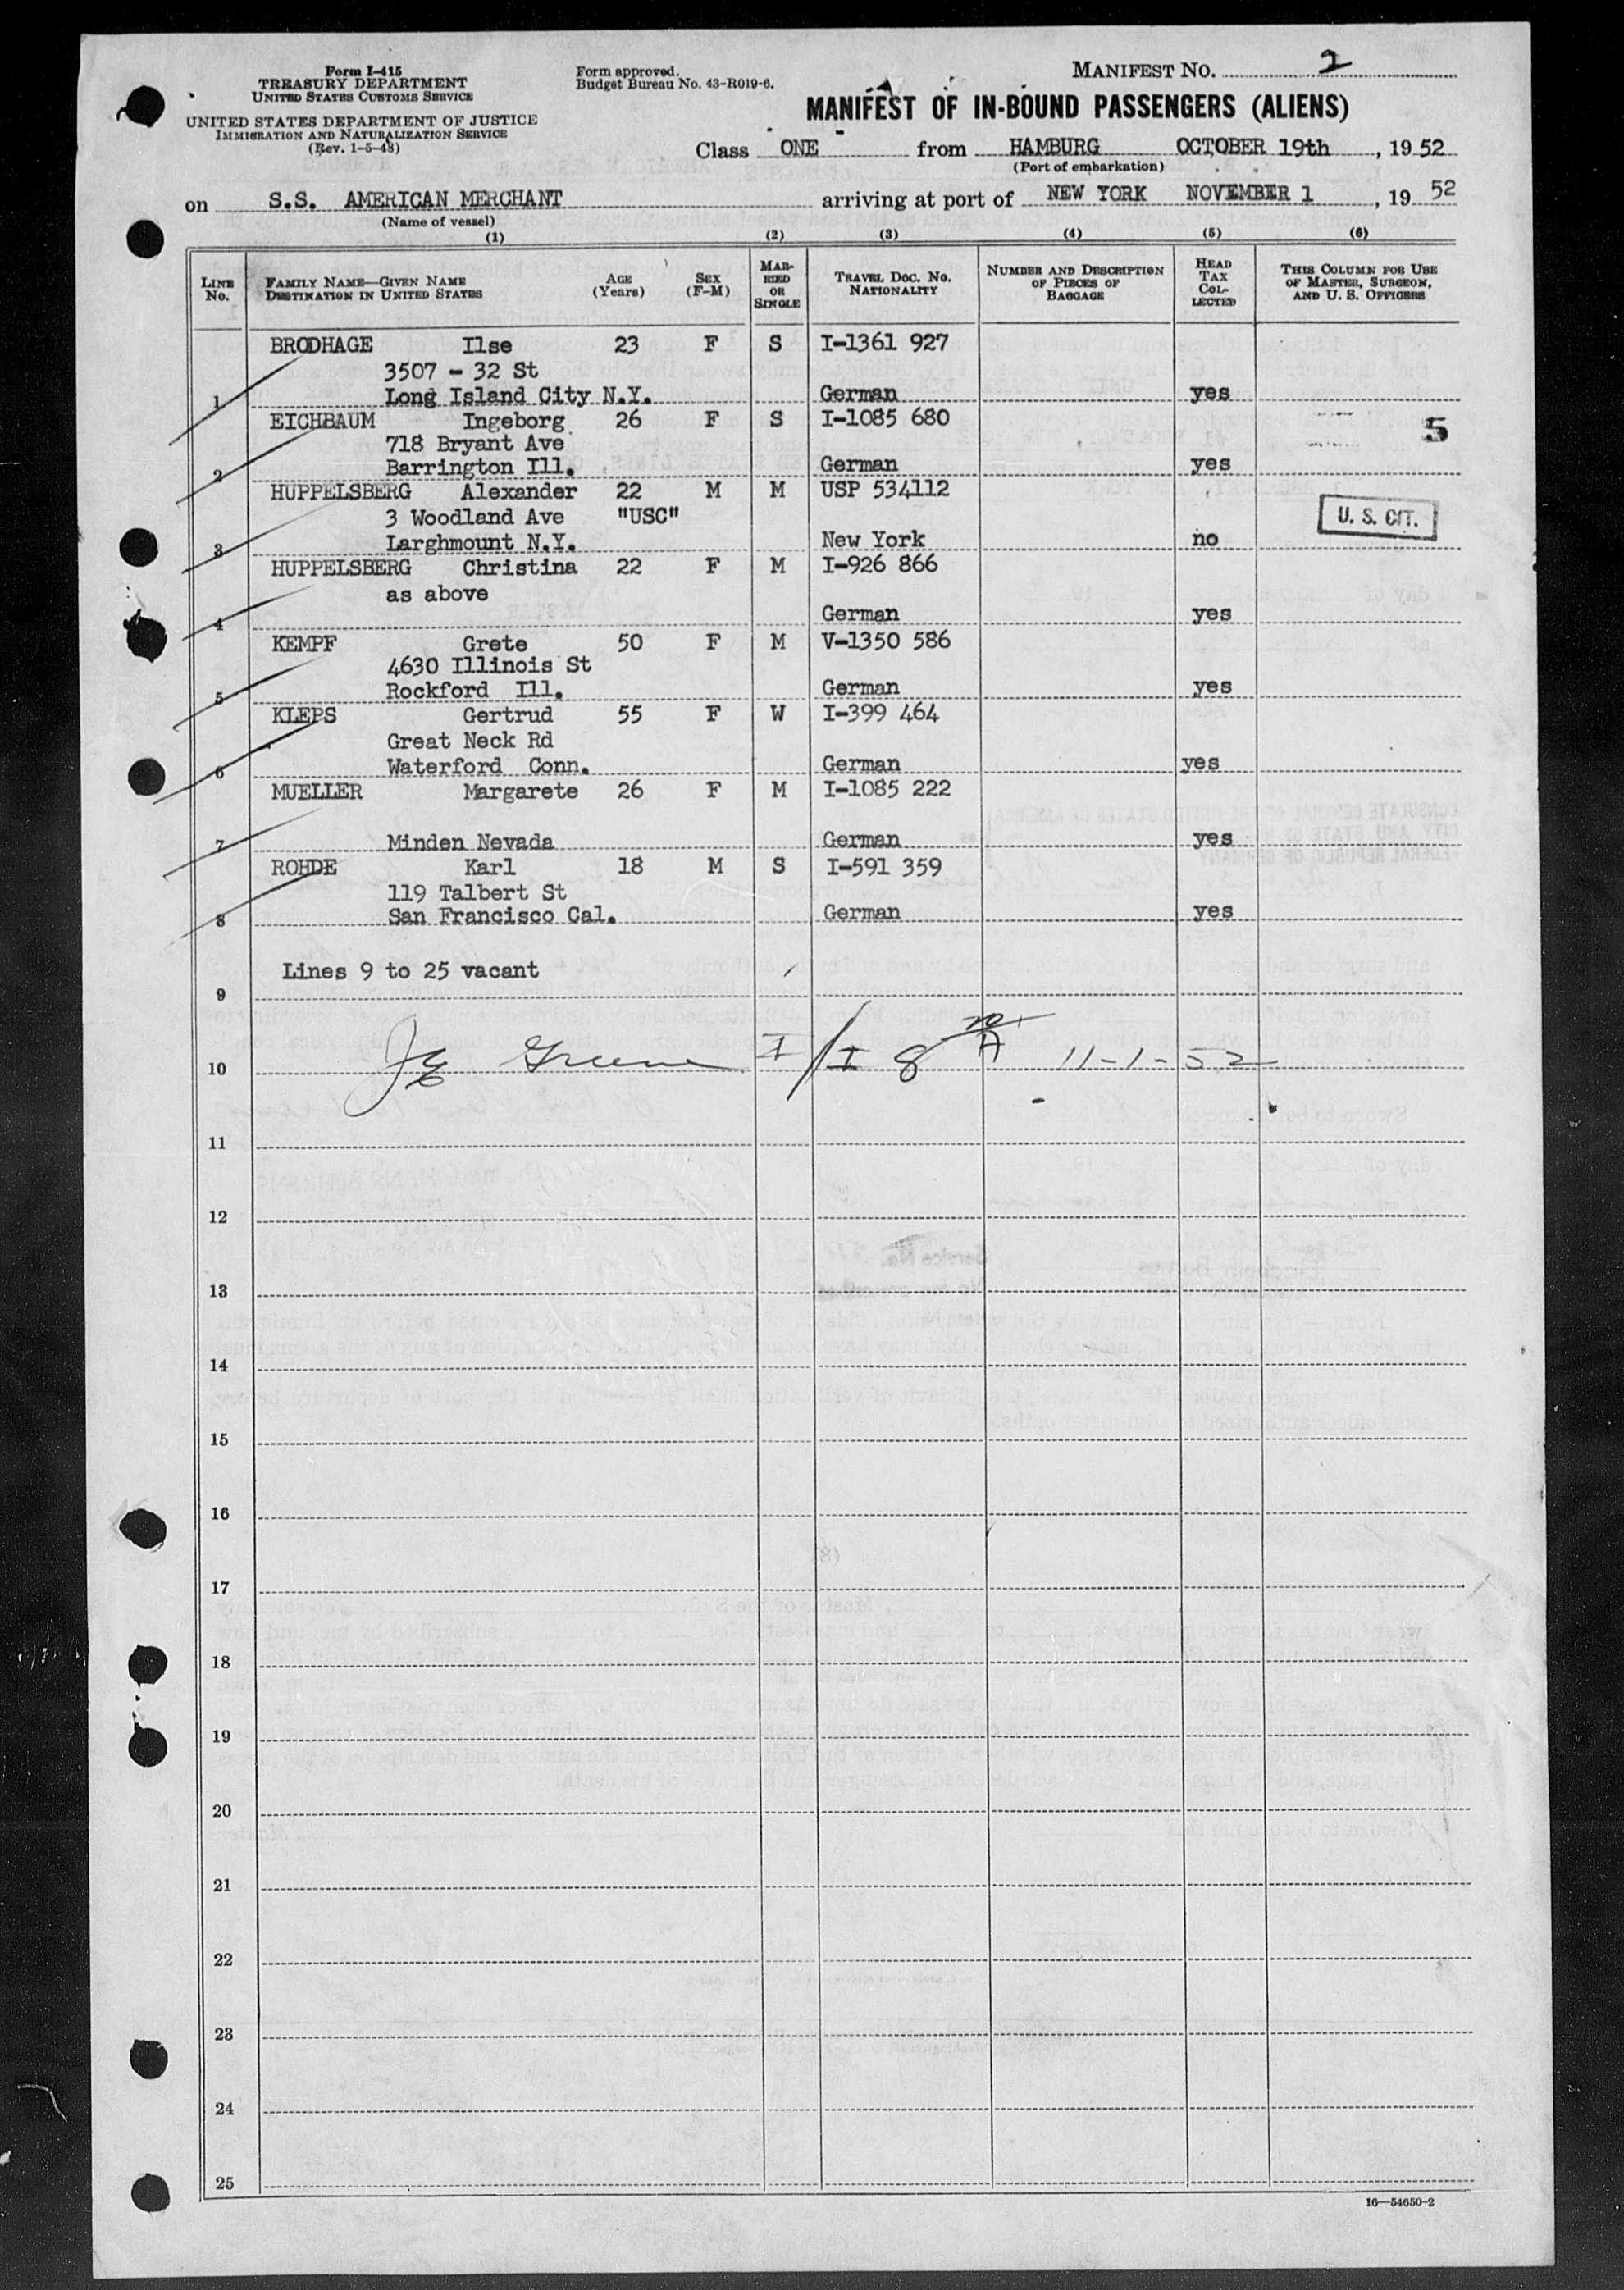 Form I-415
TREASURY DEPARTMENT
UNITED STATES CUSTOMS SERVICE
UNITED STATES DEPARTMENT OF JUSTICE
IMMIGRATION AND NATURALIZATION SERVICE
(Rev. 1-5-48)
Form approved.
Budget Bureau No. 43-R019-6.
MANIFEST NO. 2
MANIFEST OF IN-BOUND PASSENGERS (ALIENS)
Class ONE from HAMBURG OCTOBER 19th, 1952
(Port of embarkation)
on S.S. AMERICAN MERCHANT arriving at port of NEW YORK NOVEMBER 1, 19 52
(Name of vessel)
(1) (2) (3) (4) (5) (6)
LINE NO. FAMILY NAME—GIVEN NAME DESTINATION IN UNITED STATES AGE (Years) SEX (F-M) MARRIED OR SINGLE TRAVEL DOC. NO. NATIONALITY NUMBER AND DESCRIPTION OF PIECES OF BAGGAGE HEAD TAX COLLECTED THIS COLUMN FOR USE OF MASTER, SURGEON, AND U. S. OFFICERS
BRODHAGE Ilse 23 F S I-1361 927
3507 - 32 St
1 Long Island City N.Y. German yes
EICHBAUM Ingeborg 26 F S I-1085 680 5
718 Bryant Ave
2 Barrington Ill. German yes
HUPPELSBERG Alexander 22 M M USP 534112
3 Woodland Ave "USC" U. S. CIT.
3 Larghmount N.Y. New York no
HUPPELSBERG Christina 22 F M I-926 866
as above
4 German yes
KEMPF Grete 50 F M V-1350 586
4630 Illinois St
5 Rockford Ill. German yes
KLEPS Gertrud 55 F W I-399 464
Great Neck Rd
6 Waterford Conn. German yes
MUELLER Margarete 26 F M I-1085 222
7 Minden Nevada German yes
ROHDE Karl 18 M S I-591 359
119 Talbert St
8 San Francisco Cal. German yes
Lines 9 to 25 vacant
9
10 Greene I I 8 11-1-52
11
12
13
14
15
16
17
18
19
20
21
22
23
24
25
16—54650-2